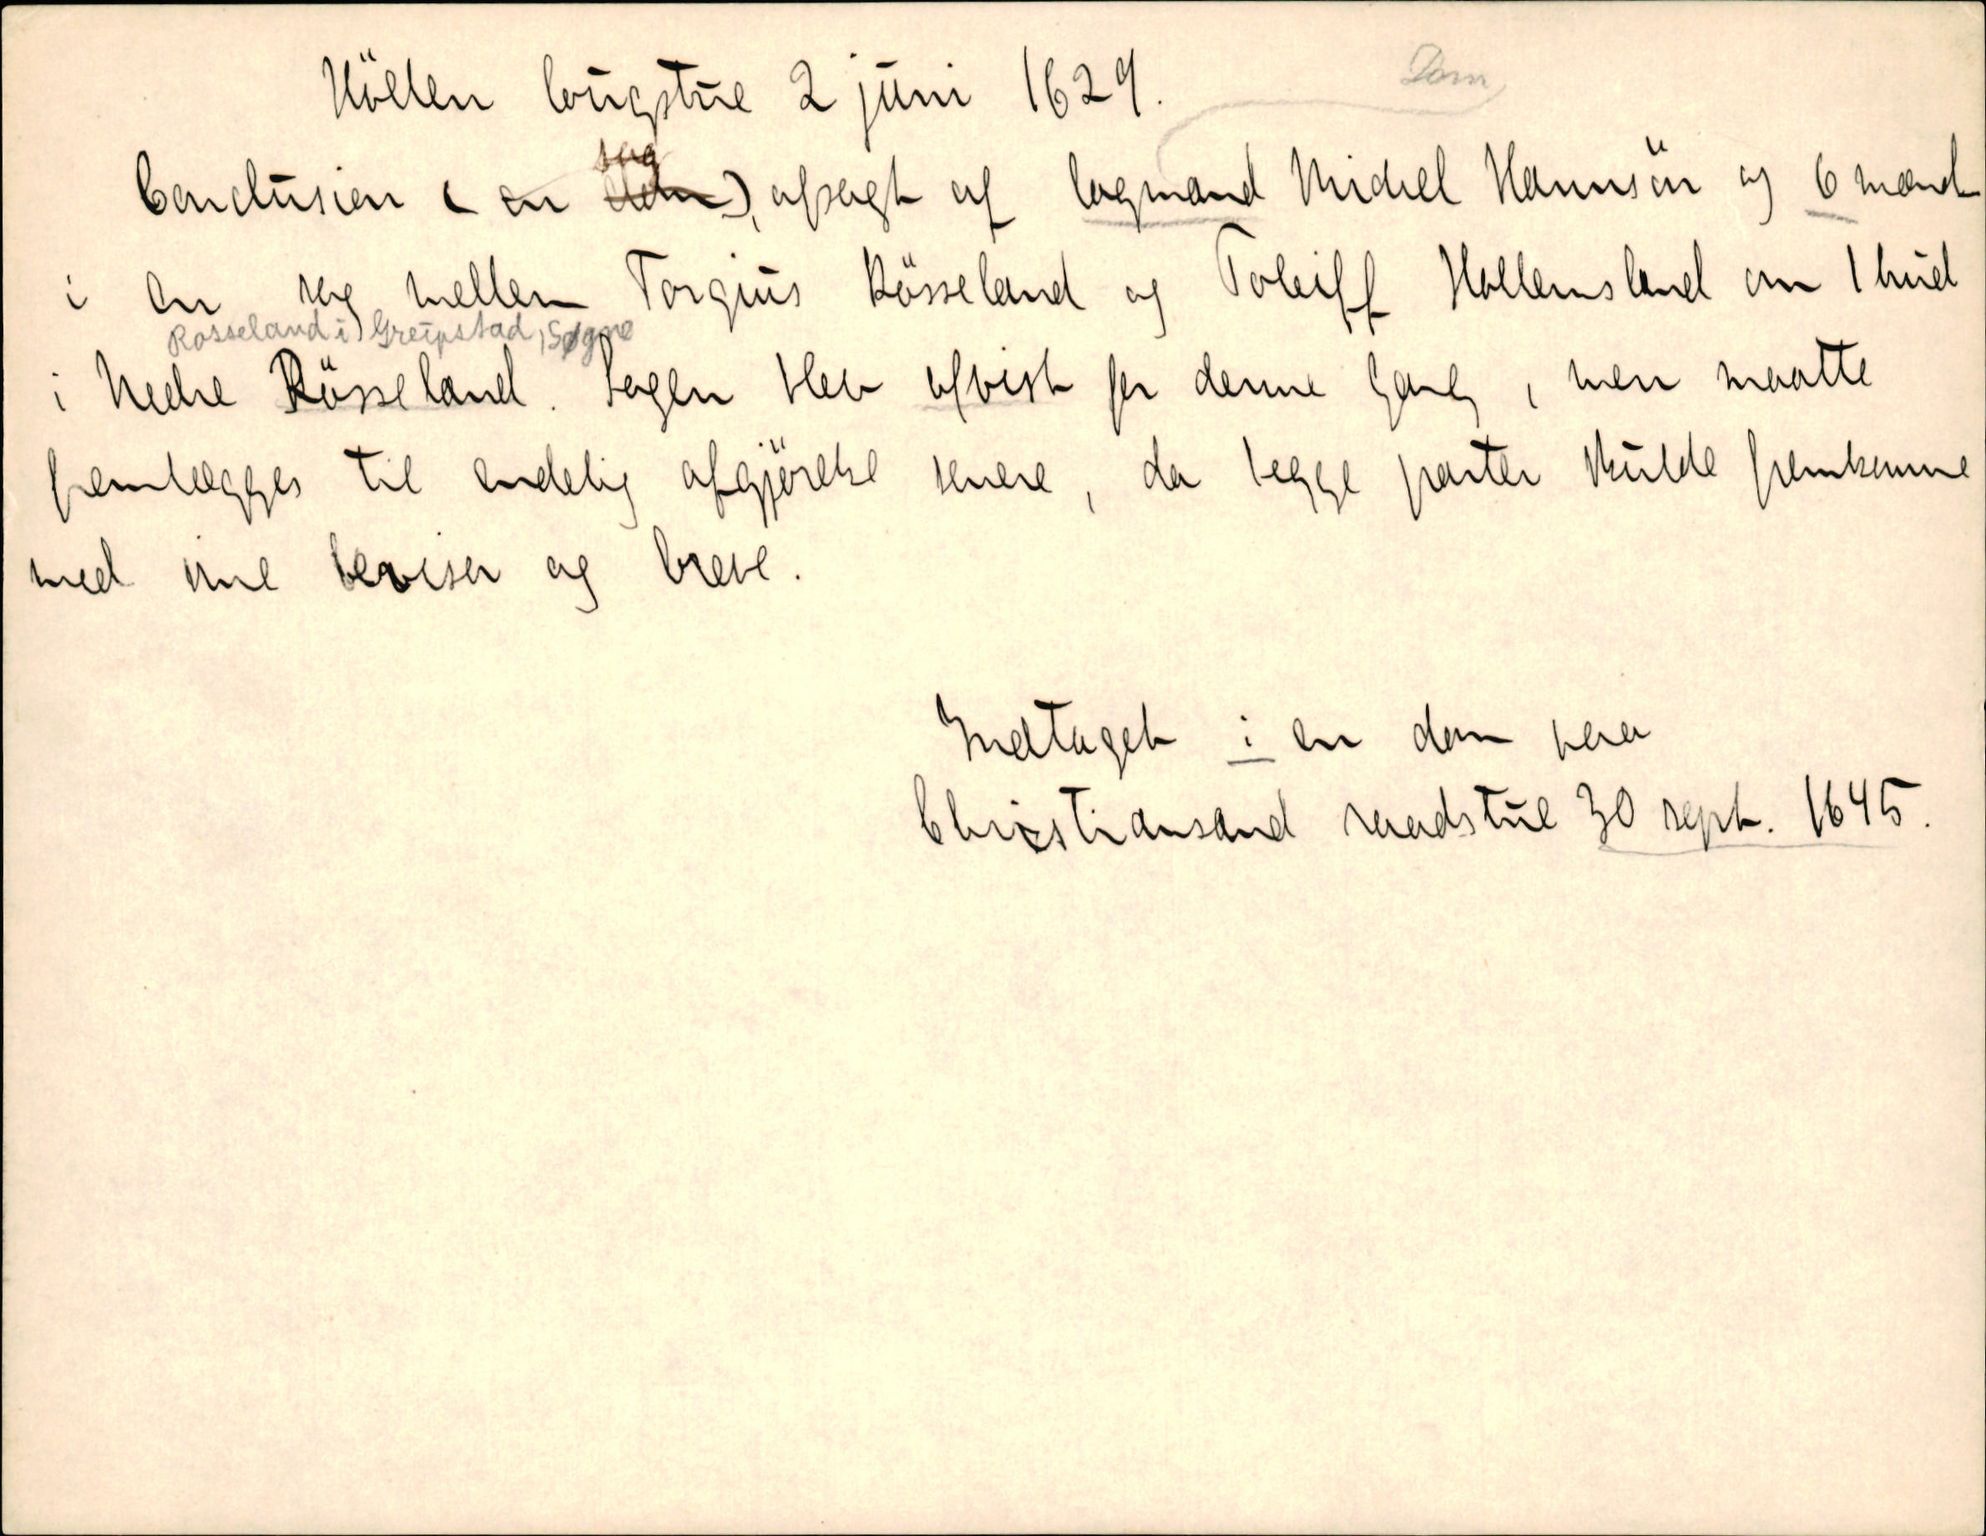 Höllen lougstue 2 juni 1629.
Dom
sag
Conclusion (en dom), afsagt af lagmand Michel Hannsön og 6 mænd
i en sag mellem Torgius Rösseland og Toleiff Hollensland om 1 hud
Rosseland i Greipstad, Søgne
i Nedre Rösseland. Sagen blev afvist for denne gang, men maatte
fremlægges til endelig afgjörelse senere, da begge parter skulde fremkomme
med sine beviser og breve.
Indtaget i en dom paa
Christiansand raadstue 30 sept. 1645.